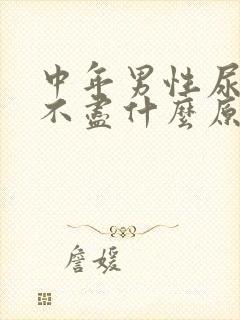 中年男性尿
不盡什麼原
詹媛